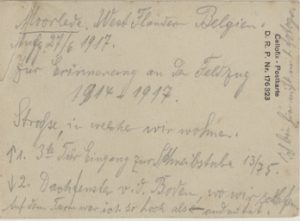 Moorslede. West Flandern Belgien.
Aufg 27/6 1917.
Zur Erinnerung an den Feldzug
1914-1917.
Straße, in welcher wir wohnen.
↑1. Tür Eingang zur Schreibstube 13/75.
↓2. Dachfenster v. d. Boden, wo wir schlafen
Auf dem Turm war ich so hoch als
Cellofix-Postkarte
D. R. P. Nr. 176323